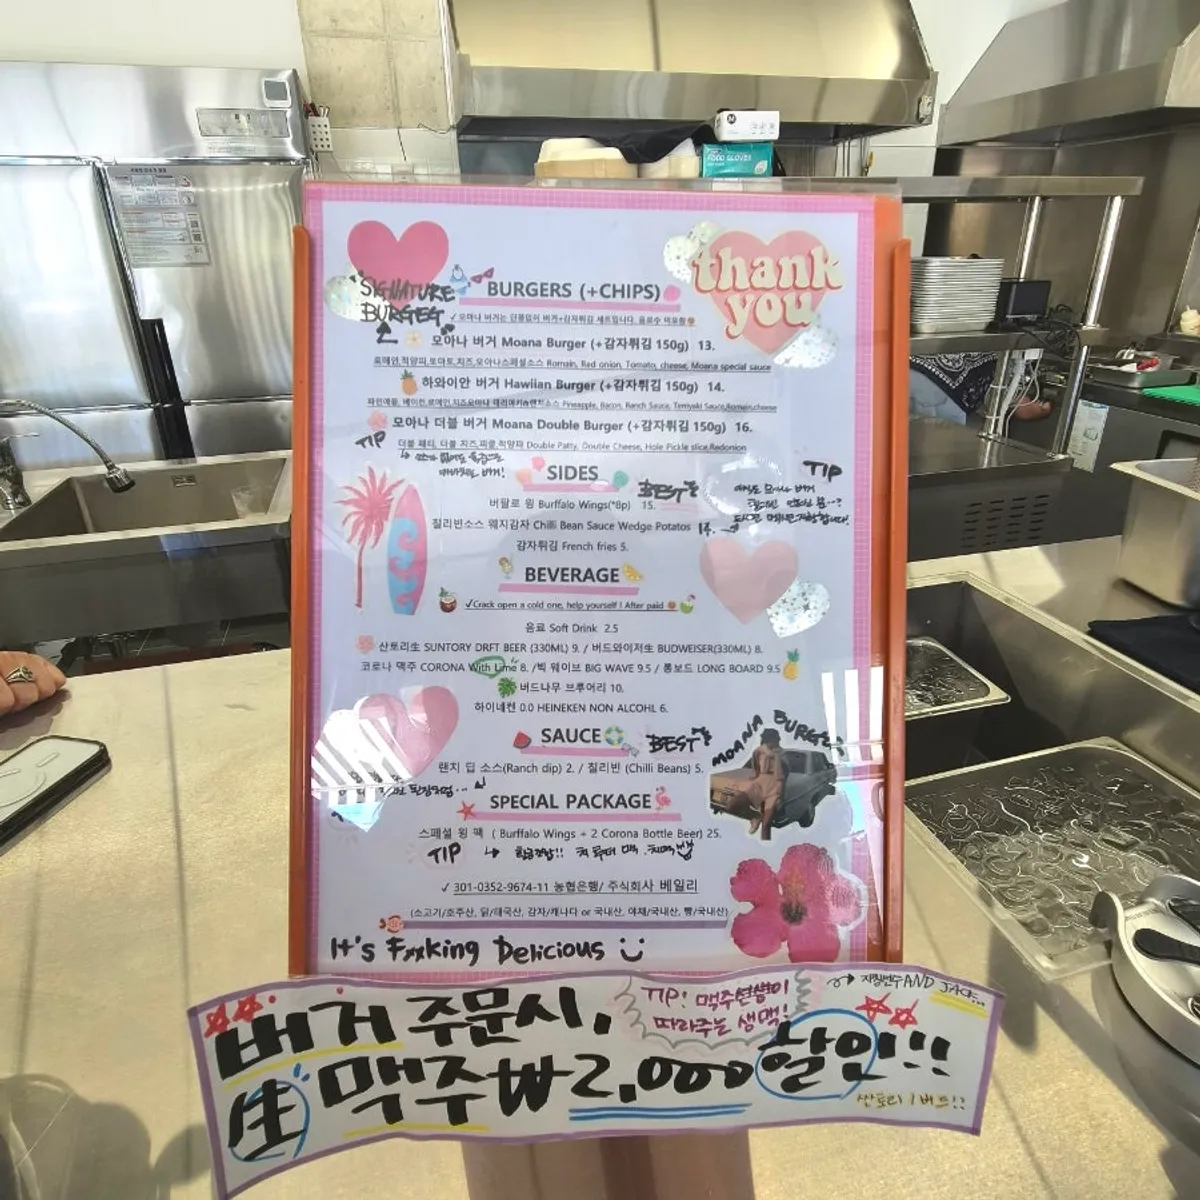 FOOD GLOVES
thank
you
SIGNATURE
BURGEG
BURGERS (+CHIPS)
✓ 모아나 버거는 단품없이 버거+감자튀김 세트입니다. 음료수 미포함
모아나 버거 Moana Burger (+감자튀김 150g) 13.
로메인,적양파,토마토,치즈,모아나스페셜소스 Romain, Red onion, Tomato, cheese, Moana special sauce
하와이안 버거 Hawiian Burger (+감자튀김 150g) 14.
파인애플, 베이컨,로메인,치즈모아나 데리야끼&랜치소스 Pineapple, Bacon, Ranch Sauce, Terriyaki Sauce,Romain,cheese
모아나 더블 버거 Moana Double Burger (+감자튀김 150g) 16.
TIP
더블 패티, 더블 치즈,피클,적양파 Double Patty, Double Cheese, Hole Pickle slice,Redonion
SIDES
BEST
TIP
버팔로 윙 Burffalo Wings(*8p) 15.
칠리빈소스 웨지감자 Chilli Bean Sauce Wedge Potatos 14.
감자튀김 French fries 5.
BEVERAGE
✓Crack open a cold one, help yourself ! After paid
음료 Soft Drink 2.5
산토리生 SUNTORY DRFT BEER (330ML) 9. / 버드와이저生 BUDWEISER(330ML) 8.
코로나 맥주 CORONA With Lime 8. /빅 웨이브 BIG WAVE 9.5 / 롱보드 LONG BOARD 9.5
버드나무 브루어리 10.
하이네켄 0.0 HEINEKEN NON ALCOHL 6.
SAUCE
BEST
MOANA BURGER
랜치 딥 소스(Ranch dip) 2. / 칠리빈 (Chilli Beans) 5.
SPECIAL PACKAGE
스페셜 윙 팩 ( Burffalo Wings + 2 Corona Bottle Beer) 25.
TIP
✓ 301-0352-9674-11 농협은행/ 주식회사 베일리
(소고기/호주산, 닭/태국산, 감자/캐나다 or 국내산, 야채/국내산, 빵/국내산)
It's Fxxking Delicious
TIP! 맥주선생이
따라주는 생맥!
AND JACK..
버거 주문시,
生맥주₩2,000할인!!
산토리 / 버드!!